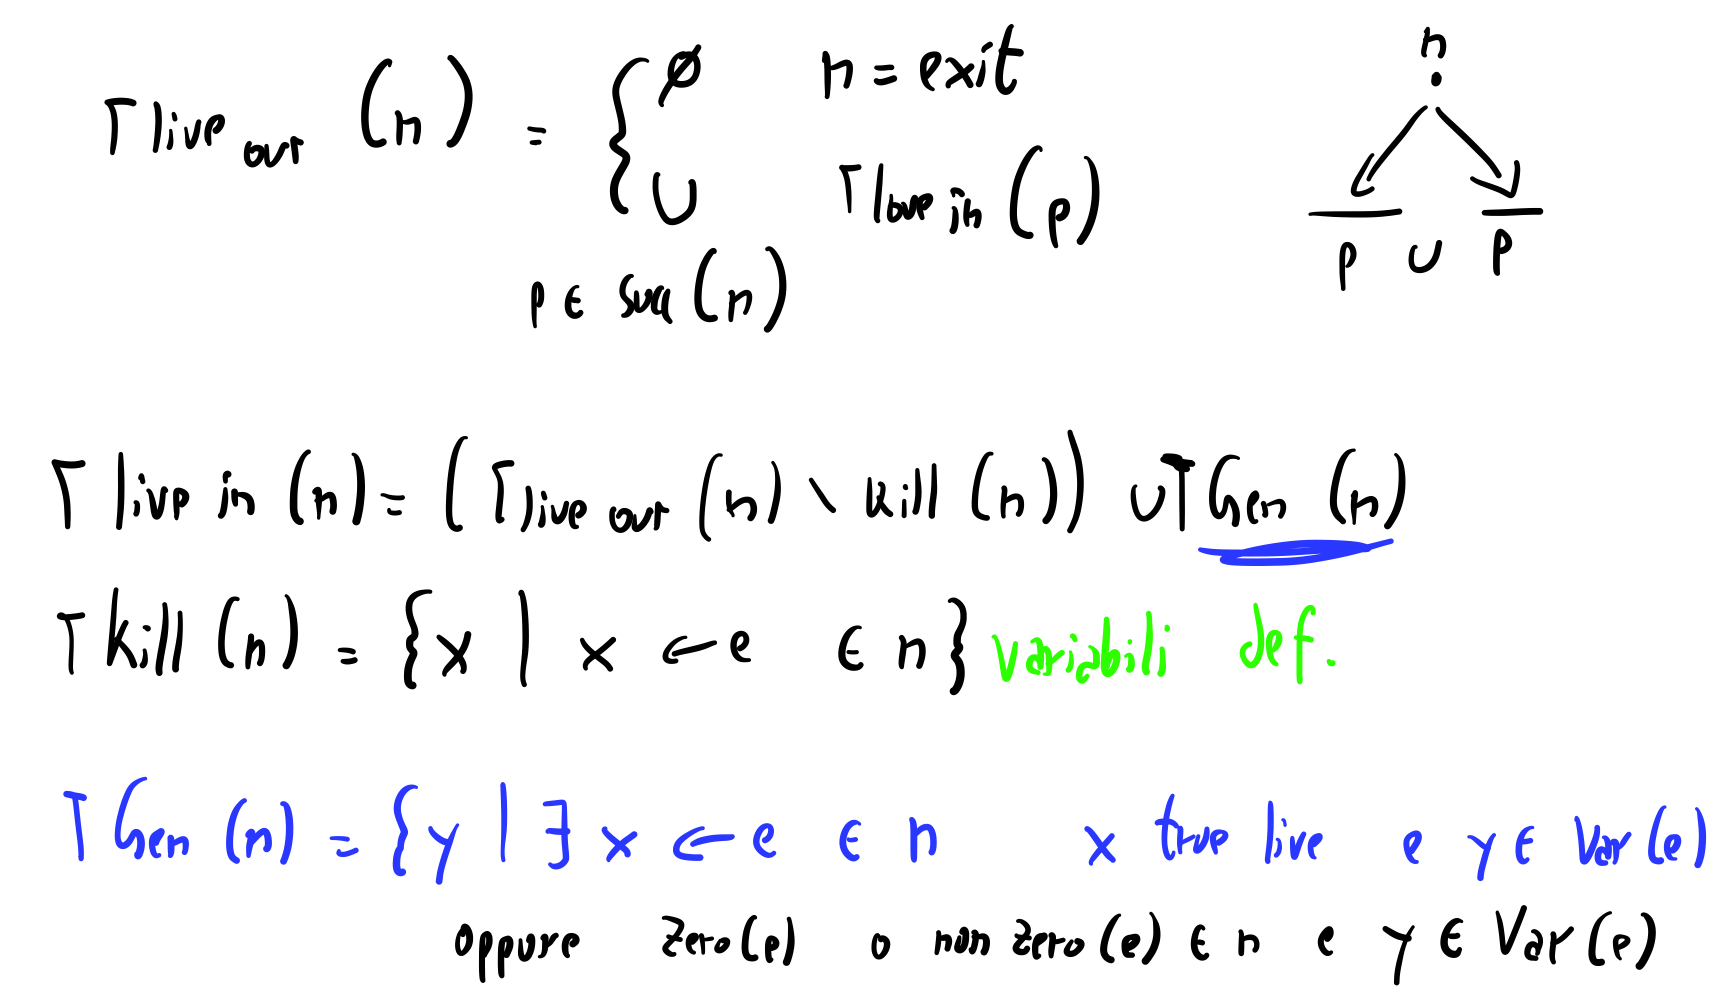 Tlive out (n) = { ∅ n = exit
∪ Tlove in (p)
p ∈ succ (n)
n
p ∪ p
T live in (n) = (Tlive out (n) \ kill (n)) ∪ TGen (n)
T kill (n) = {x | x ← e ∈ n} variabili def.
T Gen (n) = {y | ∃ x ← e ∈ n x true live e y ∈ Var (e)
oppure zero(e) o non zero(e) ∈ n e y ∈ Var (e)